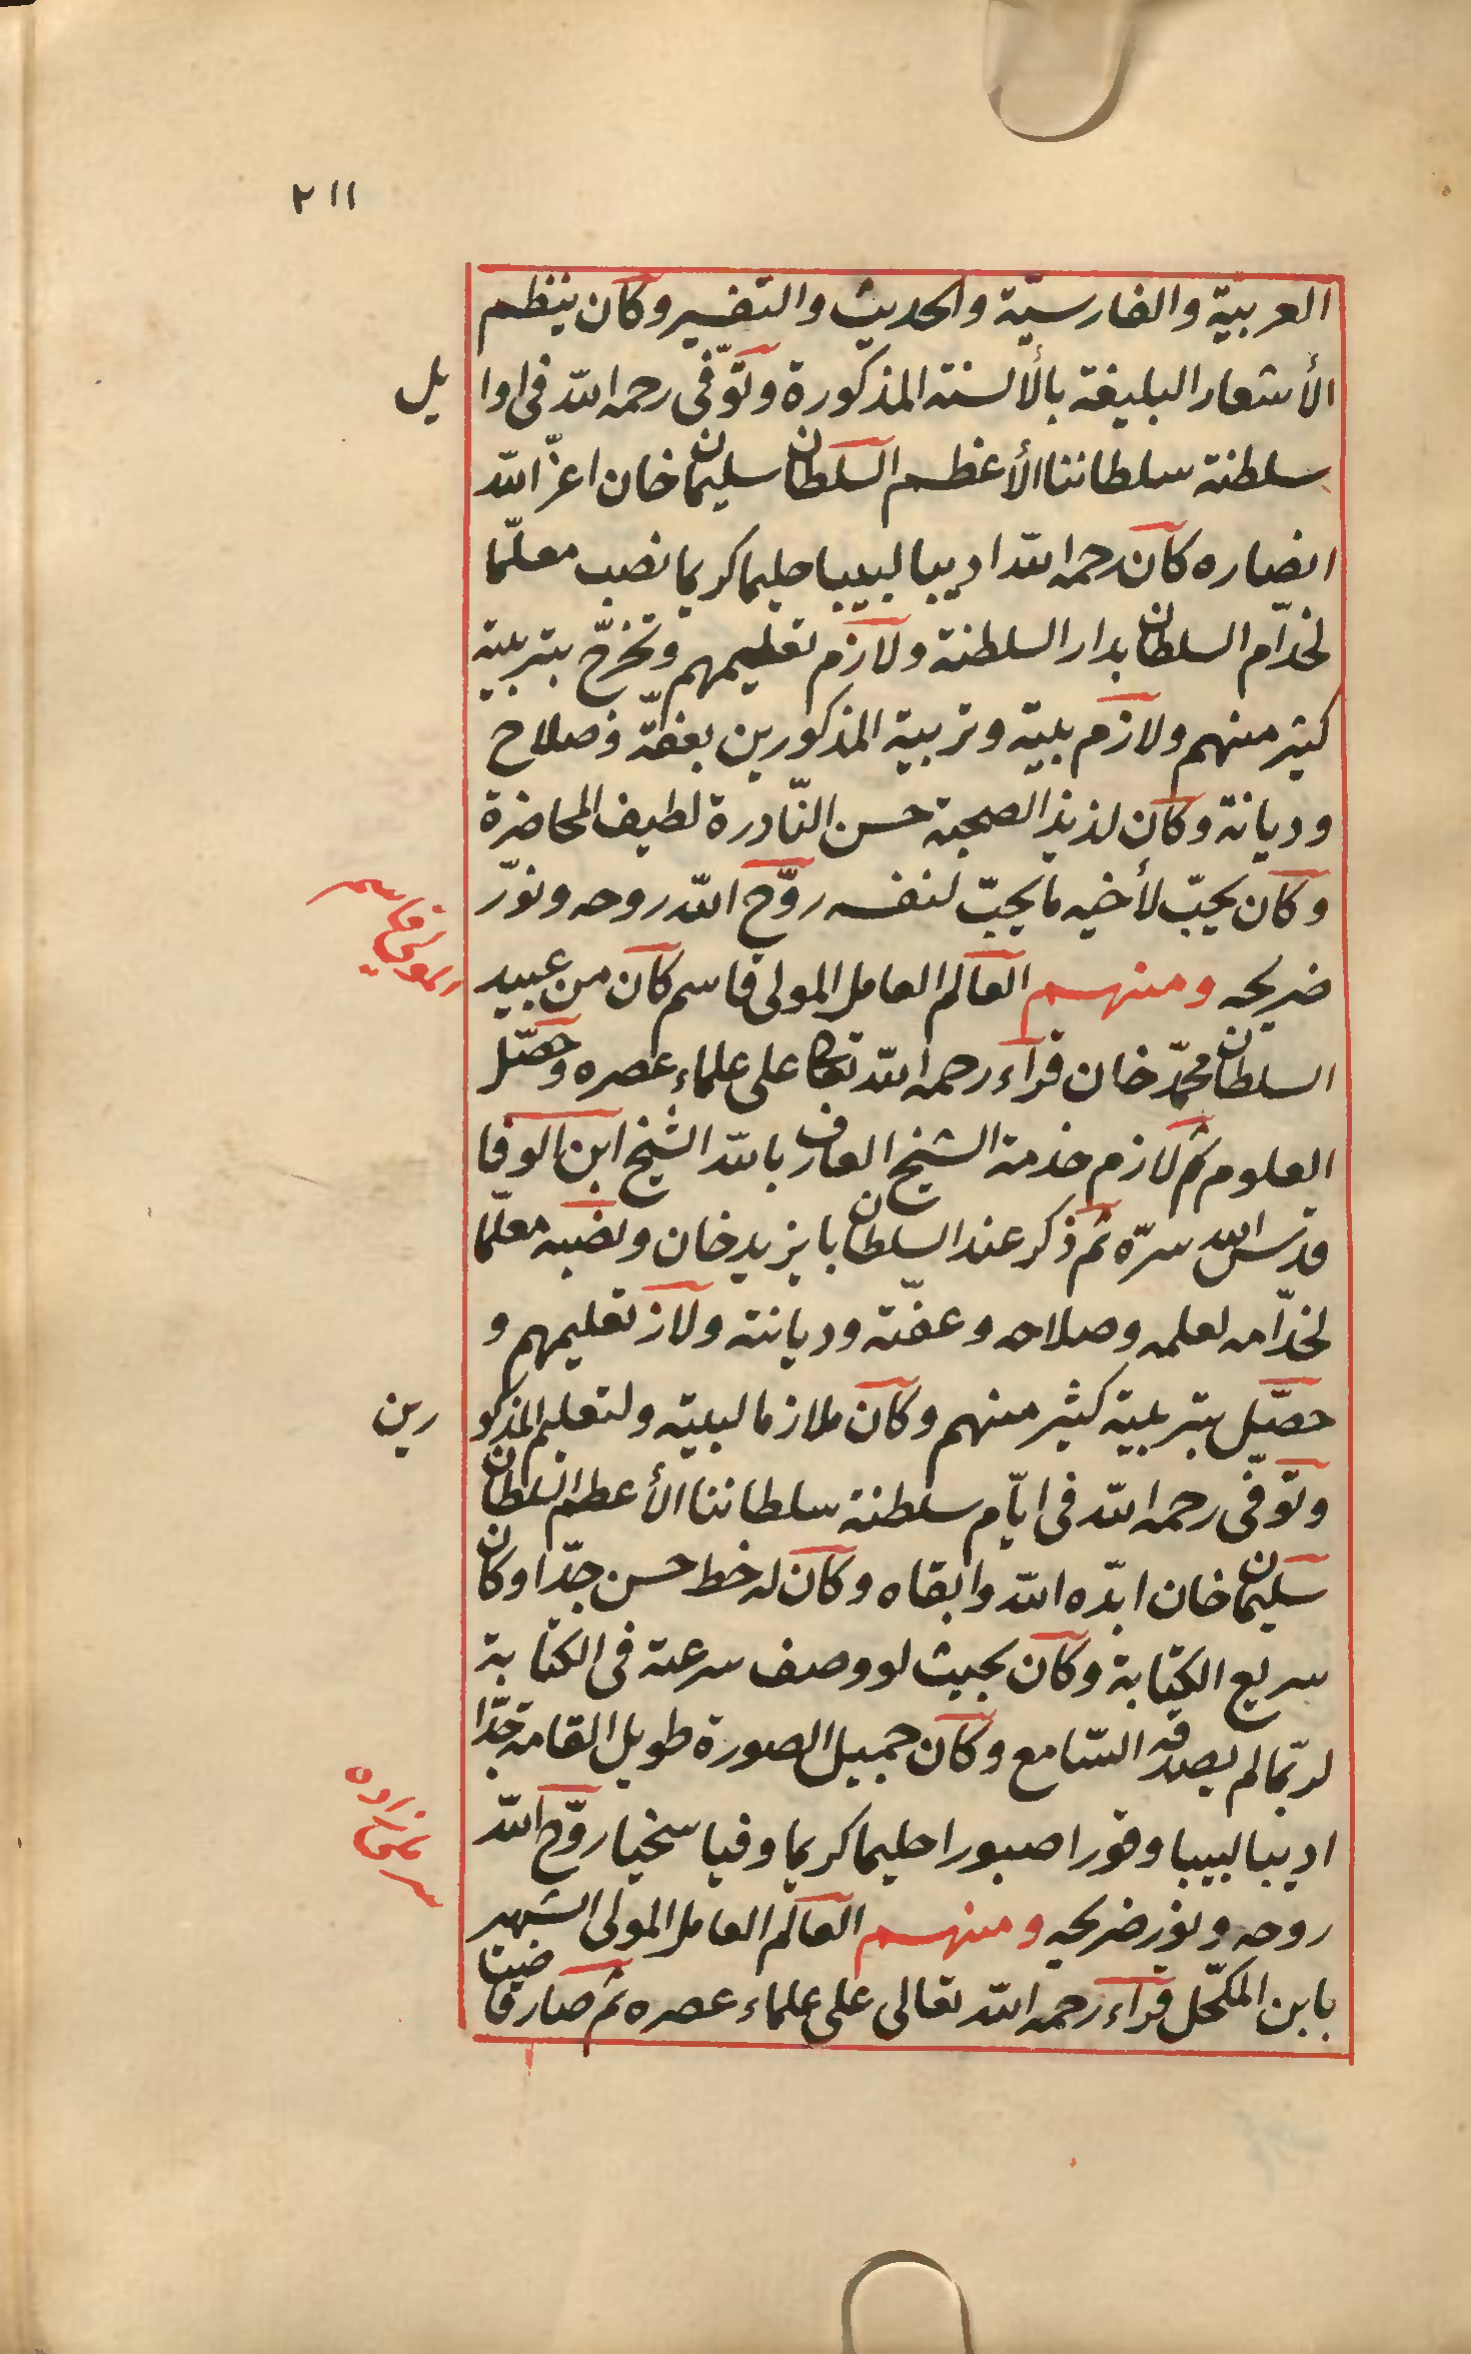 ٢١١
العربيّة والفارسيّة والحديث والتفسير وكان ينظم
الأشعار البليغة بالألسنة المذكورة وتوّفى رحمه الله فى اوا يل
سلطنة سلطاننا الأعظم السلطان سليمان خان اعزّ الله
انصاره كان رحمه الله اديبا لبيبا حليما كريما نصب معلّما
لخدّام السلطان بدار السلطنة ولازم تعليمهم وتخرّج بتربية
كثير منهم ولازم بيته وتربية المذكورين بعفّة وصلاح
وديانة وكان لذيذ الصحبة حسن النّادرة لطيف المحاضرة
وكان يحبّ لأخيه ما يحبّ لنفسه روّح الله روحه ونوّر
المولى قاسم
ضريحه ومنهم العالم العامل المولى قاسم كان من عبيد
السلطان محمّد خان قراء رحمه الله تعالى على علماء عصره وحصّل
العلوم ثم لازم خدمة الشيخ العارف بالله الشيخ ابن الوفا
قدّس الله سرّه ثم ذكر عند السلطان بايزيد خان ونصبه معلّما
لخدّامه لعلمه وصلاحه وعفّته وديانته ولاز تعليمهم و
حصّل بتربية كثير منهم وكان ملازما لبيته ولتعليم المذكو رين
وتوّفى رحمه الله فى ايّام سلطنة سلطاننا الأعظم السلطان
سليمان خان ابدّه الله وابقاه وكان له خط حسن جدّا وكان
سريع الكتابة وكان بحيث لو وصف سرعته فى الكتابة
لربّما لم يصدقه السّامع وكان جميل الصورة طويل القامة جدّا
اديبا لبيبا وقورا صبورا حليما كريما وفيا سخيا روّح الله
روحه ونوّر ضريحه ومنهم العالم العامل المولى الشهير
بابن المكحّل قراء رحمه الله تعالى على علماء عصره ثم صار قاضيا